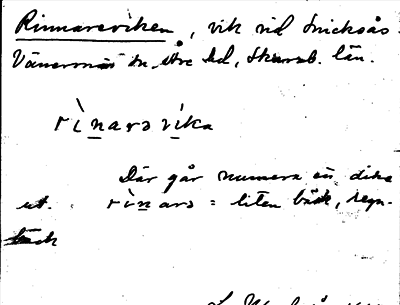 Rinnareviken, vik vid Snickås
Vänersnäs sn. Åse hd, Skarab. län.
rìnarovika
Där går numera en dike
ut. rìnaro = liten bäck, regn-
bäck